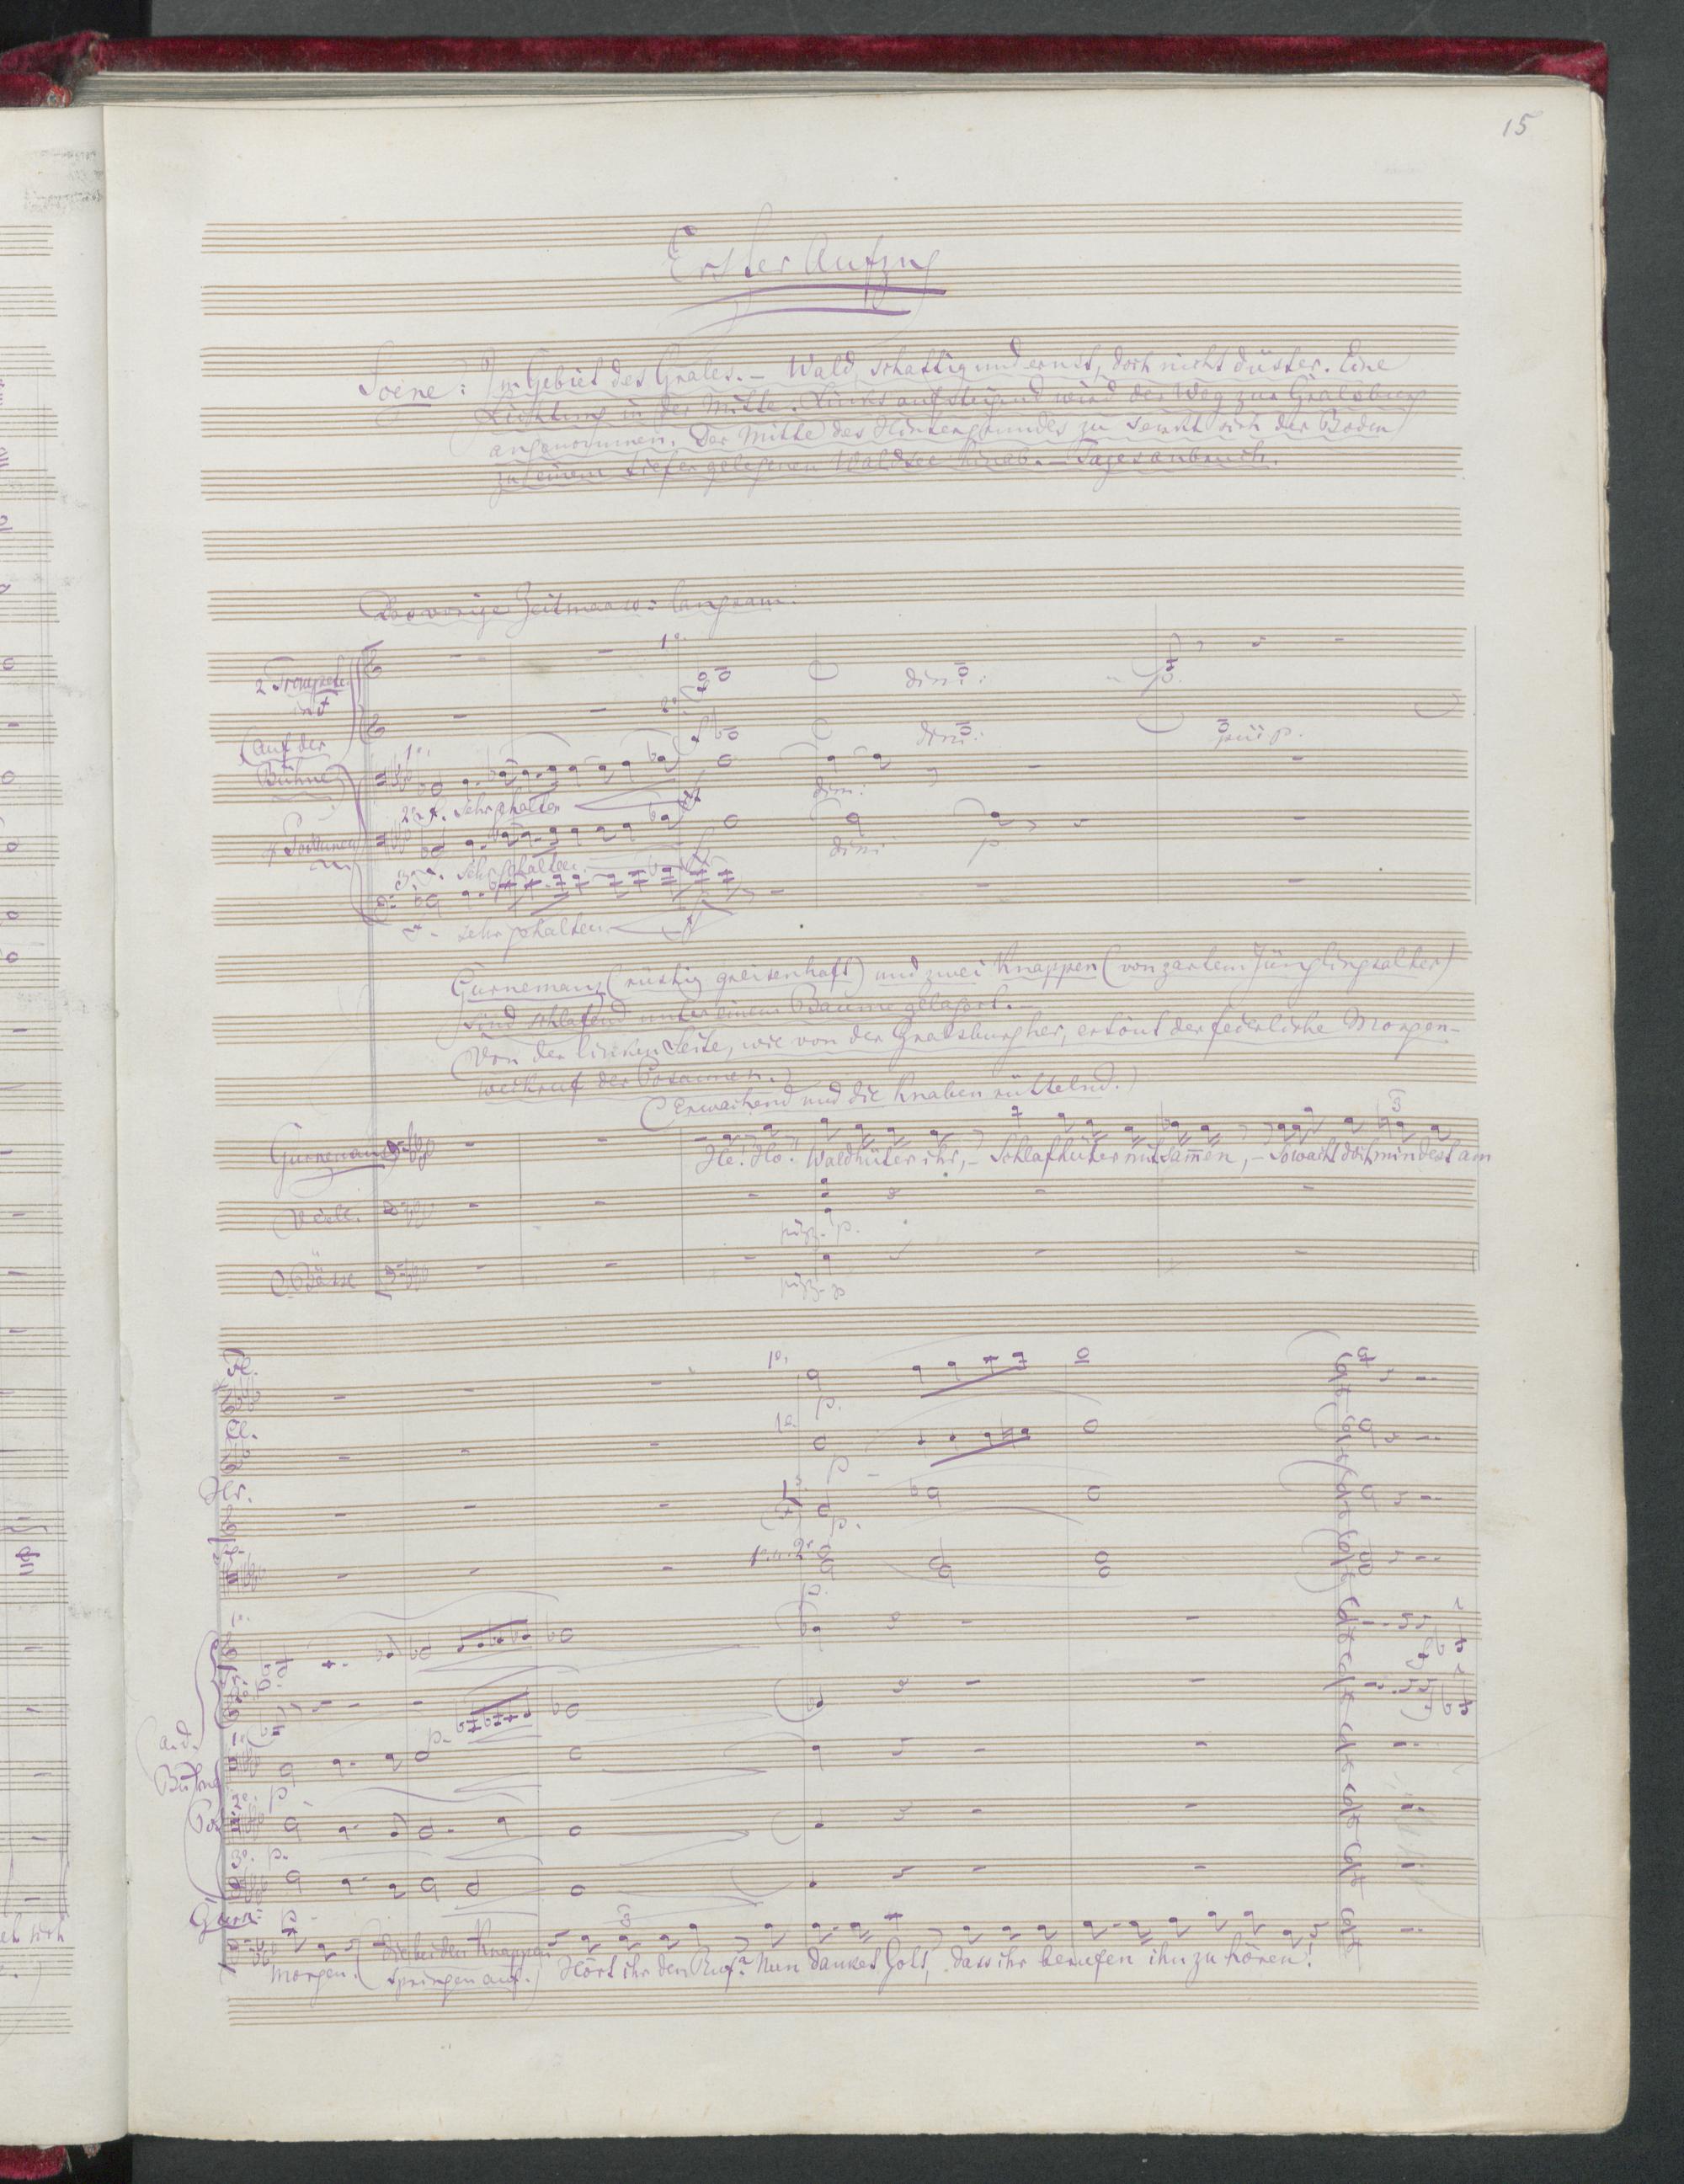 15
Erster Aufzug
Scene: Im Gebiet des Grales. – Wald, schattig und ernst, doch nicht düster. Eine
Lichtung in der Mitte. Links aufsteigend wird der Weg zur Gralsburg
angenommen. Der Mitte des Hintergrundes zu senkt sich der Boden
zu einem tiefer gelegenen Waldsee hinab. – Tagesanbruch.
Das vorige Zeitmaass: langsam.
1º.
2 Trompeten
in F
dim:
p.
2º.
(Auf der
Bühne)
dim:
più p.
1º.
f. sehr gehalten
dim:
2º
Posaunen
sehr gehalten
dim:
p
3º
f. sehr gehalten
Gurnemanz (rüstig greisenhaft) und zwei Knappen (von zartem Jünglingsalter)
sind schlafend unter einem Baume gelagert. –
(Von der linken Seite, wie von der Gralsburg her, ertönt der feierliche Morgen-
weckruf der Posaunen.)
(Erwachend und die Knaben rüttelnd.)
3
Gurnemanz
He! Ho! Waldhüter ihr, – Schlafhüter mitsammen, – So wacht doch mindest am
Vcell.
pizz. p.
C. Bässe
pizz. p
Fl.
1º.
p.
Cl.
1º.
p
Hr.
p.
1º. u. 2º
p.
(a. d.
Bühne)
p.
Pos
2º.
p
3º.
p.
Gurn:
p
3
Morgen. (Die beiden Knappen
springen auf.) Hört ihr den Ruf? Nun danket Gott, dass ihr berufen ihn zu hören!